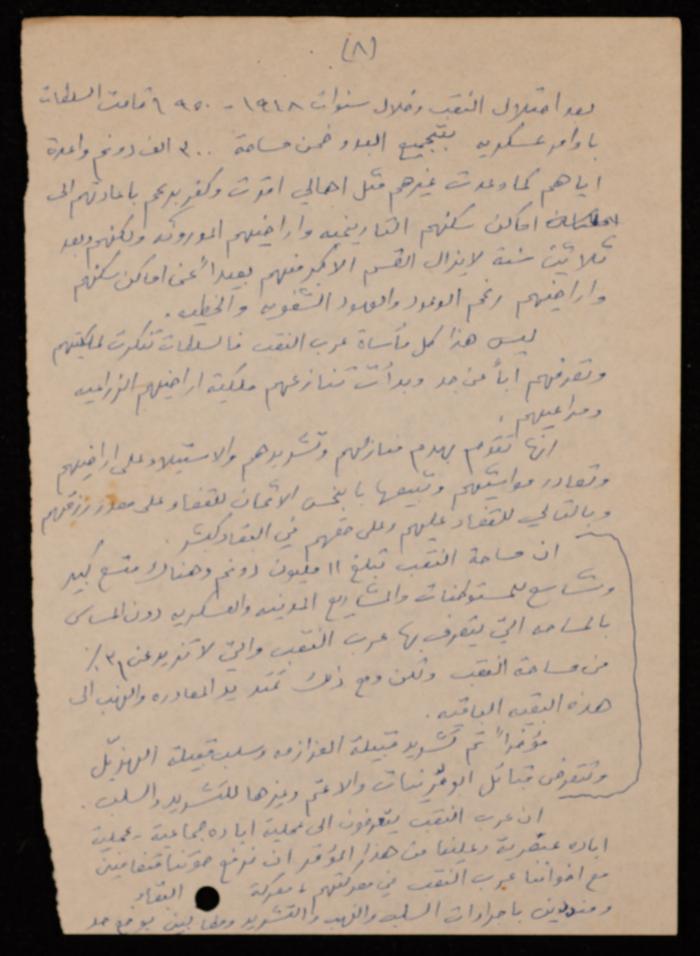 (٨)
بعد احتلال النقب وخلال سنوات ١٩٤٨ - ١٩٥٠ قامت السلطات
باوامر عسكريه بتجميع البدو ضمن مساحة ٣٠٠ الف دونم واعدة
اياهم كما وعدت غيرهم مثل اهالي اقرت وكفر برعم باعادتهم الى
اماكن سكنهم التاريخيه واراضيهم الموروثه ولكنهم وبعد
ثلاثين سنة لا يزال القسم الاكبر منهم بعيداً عن اماكن سكنهم
واراضيهم رغم الوعود والعهود الشفويه والخطيه .
ليس هذا كل مأساة عرب النقب فالسلطات تنكرت لملكيتهم
وتصرفهم اباً عن جد وبدأت تنازعهم ملكية اراضيهم الزراعيه
ومراعيهم .
انها تقوم بهدم منازلهم وتشريدهم والاستيلاء على اراضيهم
وتصادر مواشيهم وتبيعها بابخس الاثمان للقضاء على مصدر رزقهم
وبالتالي للقضاء عليهم وعلى حقهم في البقاء كبشر .
ان مساحة النقب تبلغ ١١ مليون دونم وهناك متسع كبير
وشاسع للمستوطنات والمشاريع المدنيه والعسكريه دون المساس
بالمساحه التي يتصرف بها عرب النقب والتي لا تزيد عن ٣٪
من مساحة النقب ولكن ومع ذلك تمتد يد المصادره والنهب الى
هذه البقيه الباقيه .
مؤخراً تم تشريد قبيلة العزازمه وسلب قبيلة الهزيّل
وتتعرض قبائل ابو قرينات والاعسم وغيرها للتشريد والسلب .
ان عرب النقب يتعرضون الى عملية اباده جماعية - عملية
اباده عنصرية وعلينا من هذا المؤتمر ان نرفع صوتنا متضامنين
مع اخواننا عرب النقب في معركتهم ، معركة البقاء
ومنددين باجراءات السلب والنهب والتشريد ومطالبين بوضع حد